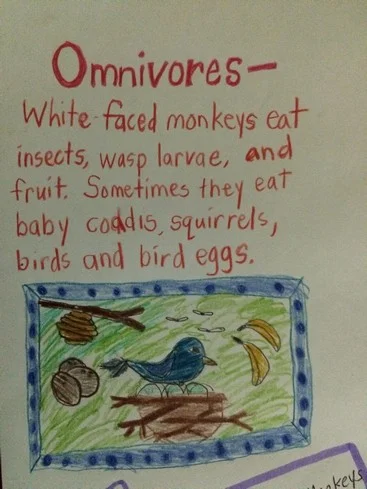 Omnivores-
White-faced monkeys eat
insects, wasp larvae, and
fruit. Sometimes they eat
baby coatis, squirrels,
birds and bird eggs.